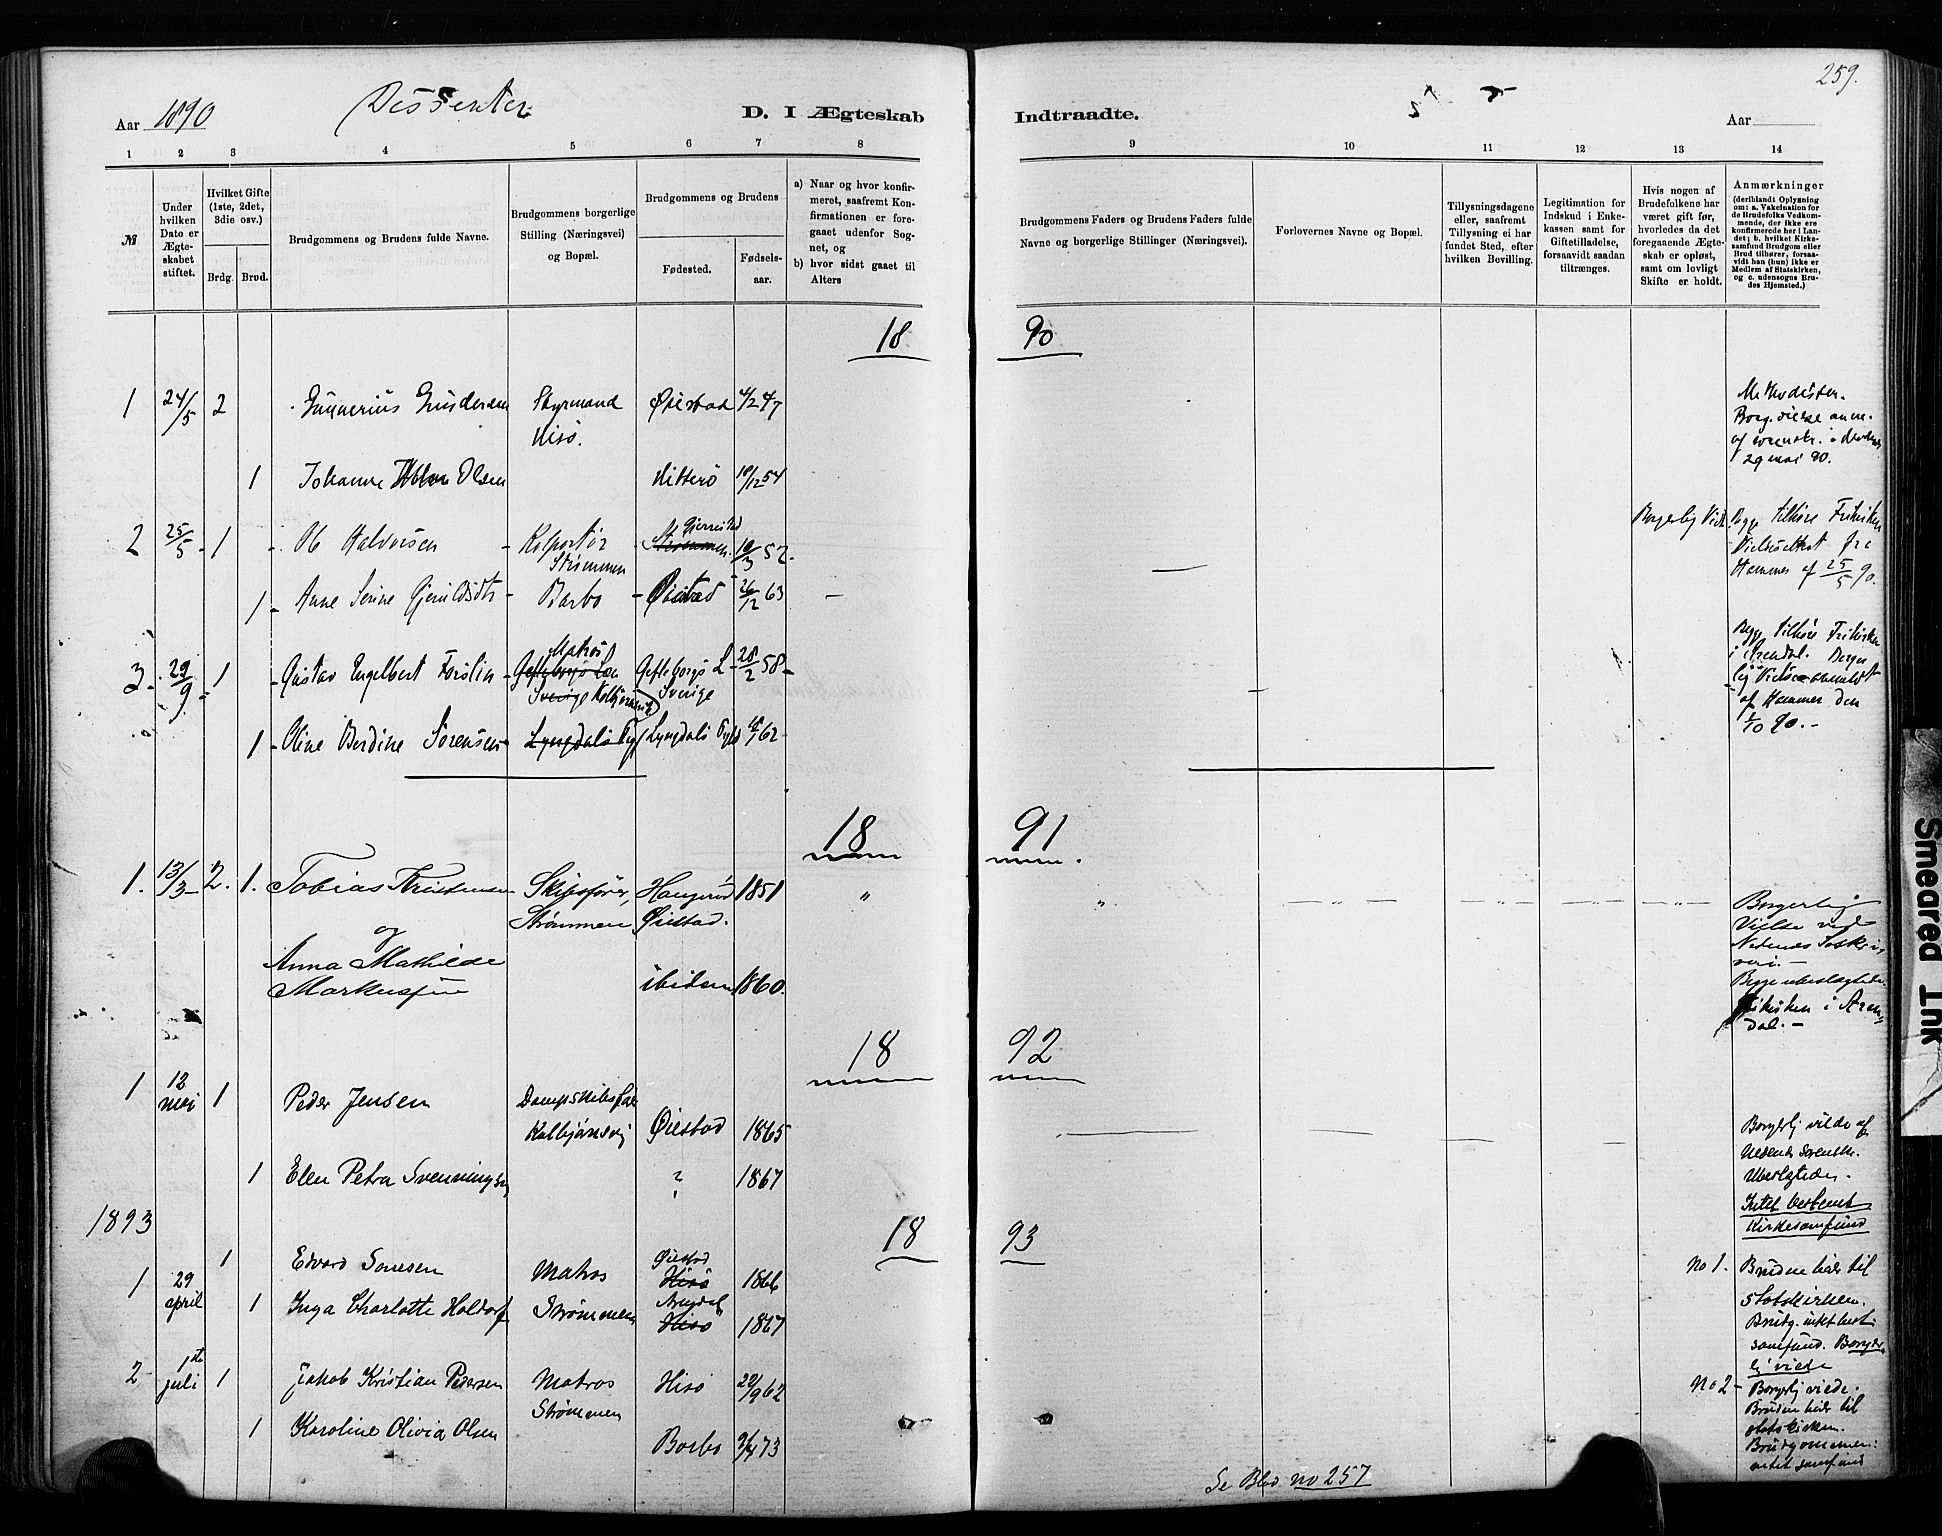 259.
Aar 1890
Dissenter
D. I Ægteskab
Indtraadte.
Aar
1 2 3 4 5 6 7 8
9 10 11 12 13 14
№
Under
hvilken
Dato er
Ægte-
skabet
stiftet.
Hvilket Gifte
(1ste, 2det,
3die osv.)
Brdg. Brud.
Brudgommens og Brudens fulde Navne.
Brudgommens borgerlige
Stilling (Næringsvei)
og Bopæl.
Brudgommens og Brudens
Fødested.
Fødsels-
aar.
a) Naar og hvor konfir-
meret, saafremt Kon-
firmationen er fore-
gaaet udenfor Sog-
net, og
b) hvor sidst gaaet til
Alters
Brudgommens Faders og Brudens Faders fulde
Navne og borgerlige Stillinger (Næringsvei).
Forlovernes Navne og Bopæl.
Tillysningsdagene
eller, saafremt
Tillysning ei har
fundet Sted, efter
hvilken Bevilling.
Legitimation for
Indskud i Enke-
kassen samt for
Giftetilladelse,
forsaavidt saadan
tiltrænges.
Hvis nogen af
Brudefolkene har
været gift før,
hvorledes da det
foregaaende Ægte-
skab er opløst,
samt om lovligt
Skifte er holdt.
Anmærkninger
(deriblandt Oplysning
om: a. Vakcination for
de Brudefolks Vedkom-
mende, der ikke ere
konfirmerede her i Lan-
det; b. hvilket Kirke-
samfund Brudgom eller
Brud tilhører, forsaa-
vidt han (hun) ikke er
Medlem af Statskirken,
og c. udensogns Bru-
des Hjemsted.)
18 90
1 24/5 2 Gunerius Gundersen Styrmand Øiestad 4/2 47
Hisø.
Methodister.
29 mai 90.
1 Johanne Olsen Hitterø 10/12 54
2 25/5 1 Ole Halvorsen Kolportør Gjerrestad Strømmen 10/3 57
Strømmen
Borgerlig Viet. Begge tilhøre Frikirken
Vielsesattest fra
Hammer af 25/5 90.
1 Anne Serine Gjeruldsdtr Barbo Øiestad 26/12 63
3 29/9 1 Gustav Engelbert Forslin Matros Gefleborgs Len Gefleborgs L 28/2 58
Sverige Kolbjørnsvik Sverige
Begge tilhøre Frikirken
i Arendal. Borger
lig Vielse anmeldt
af Hammer den
1/10 90.
1 Oline Berdine Sørensen Lyngdals Lyngdals 62
18 91
1. 13/3 2. 1. Tobias Kristensen Skibsfører, 1851
Strømmen Øiestad.
og
Anna Mathilde
Markusen ibidem 1860.
Borgerlig
Vielse ved
Nedenes Sorenskri
veri.
Frikirken i Aren
dal.
18 92
1 12 mai 1 Peder Jensen Dampskibsfører
Kolbjørnsvig Øiestad 1865
1 Elen Petra Svenningsen ? 1867
Borgerlig viede af
Nedenes Sorenskr.
Intet bestemt
Kirkesamfund
1893
18 93
1 29 april 1 Edvard Matros Øiestad Hisø 1866
1 Inga Charlotte Holdorf Strømmen Hisø 1867
No 1. Bruden hører til
Statskirken.
Brudg. intet best.
samfund. Borger
lig viede
2 1ste juli 1 Jakob Kristian Pedersen Matros Hisø 22/9 62
Strømmen
1 Karoline Olivia Olsen Barbo 73
No 2 Borgerlig viede.
Bruden hører til
statskirken.
Brudgommen
intet samfund
Se Blad no 257
Smeared Ink